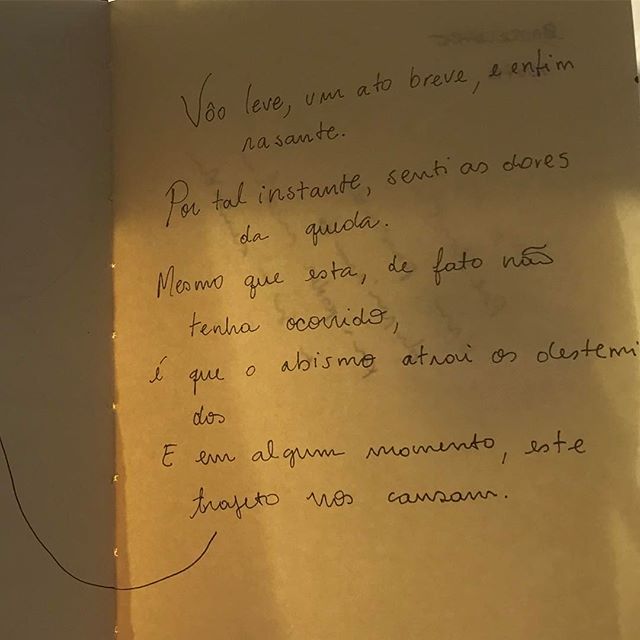 Vôo leve, um ato breve, e enfim
rasante.
Por tal instante, senti as dores
da queda.
Mesmo que esta, de fato não
tenha ocorrido,
é que o abismo atrai os destemi
dos
E em algum momento, este
trajeto nos cansam.